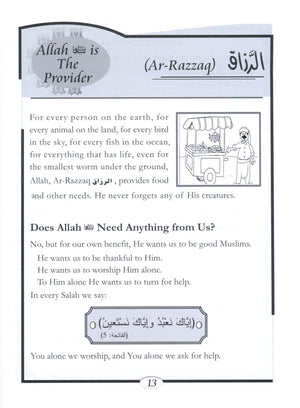 Allah ﷻ is
The
Provider
(Ar-Razzaq) الرَّزَّاق
For every person on the earth, for
every animal on the land, for every bird
in the sky, for every fish in the ocean,
for everything that has life, even for
the smallest worm under the ground,
Allah, Ar-Razzaq الرزاق, provides food
and other needs. He never forgets any of His creatures.
Does Allah ﷻ Need Anything from Us?
No, but for our own benefit, He wants us to be good Muslims.
He wants us to be thankful to Him.
He wants us to worship Him alone.
To Him alone He wants us to turn for help.
In every Salah we say:
﴿إِيَّاكَ نَعْبُدُ وإِيَّاكَ نَسْتَعِينُ﴾
(الفاتحة: 5)
You alone we worship, and You alone we ask for help.
13